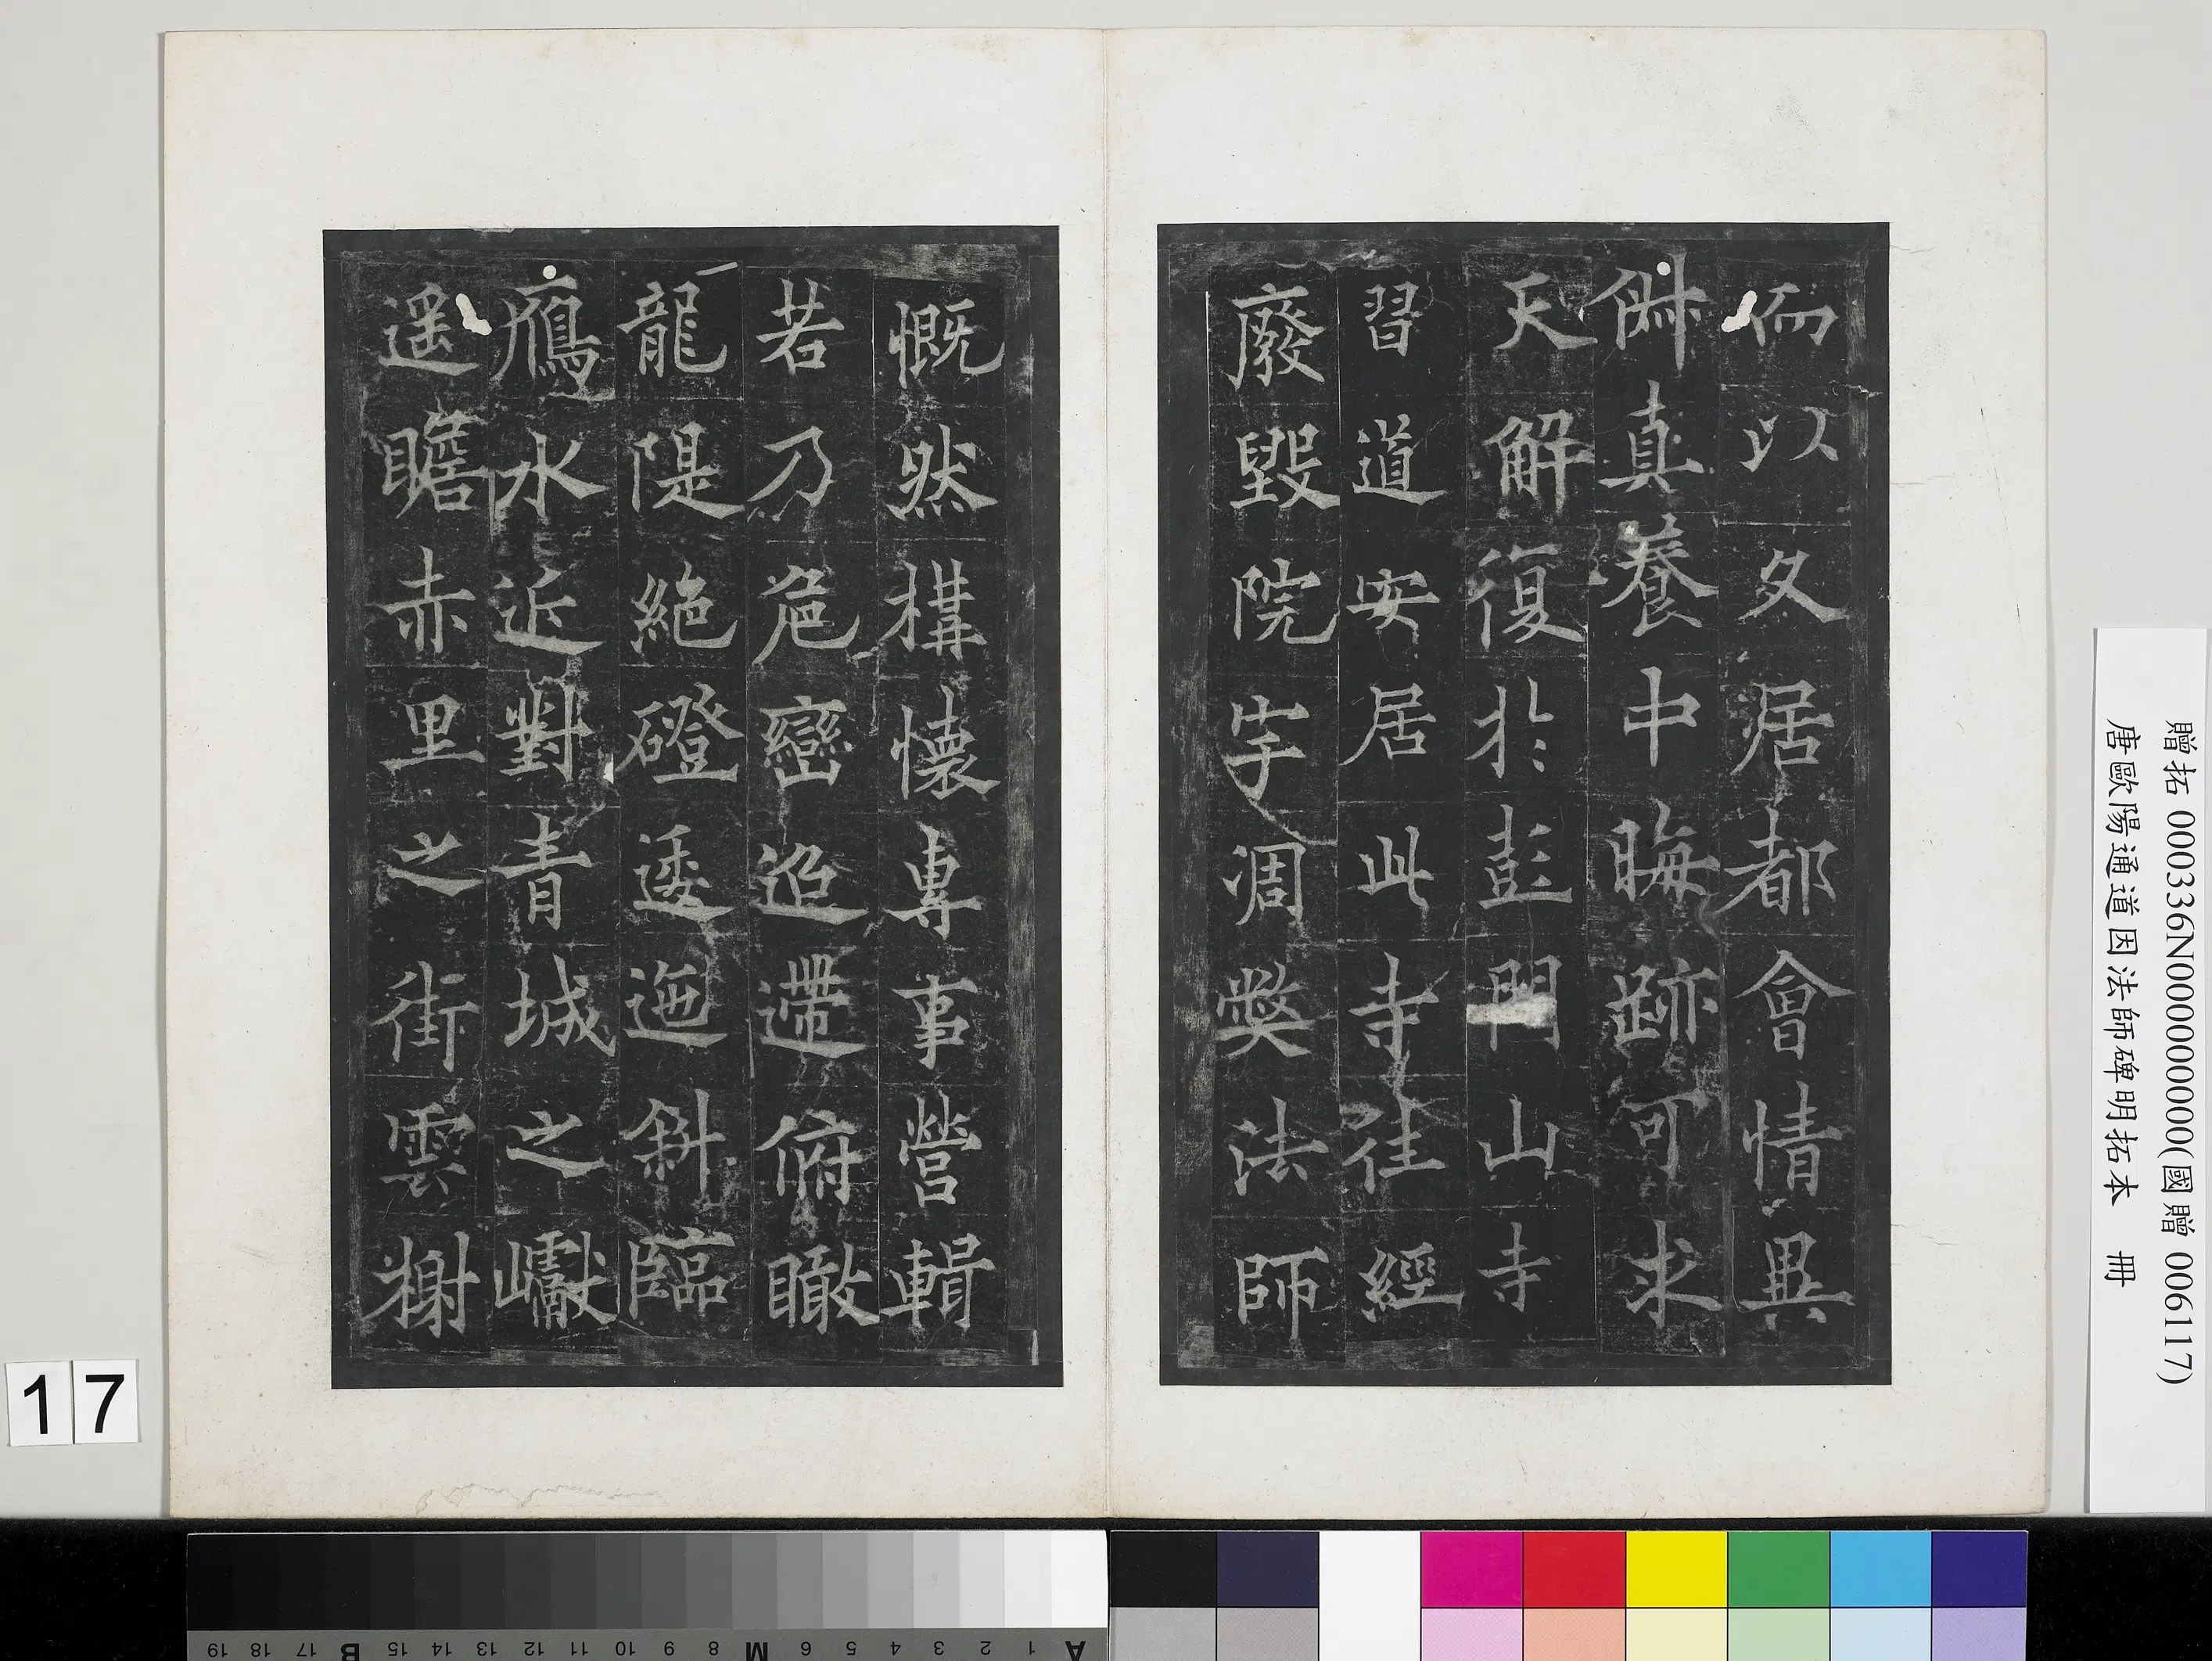 而以久居都會情異
俗真養中晦跡可求
天解復於彭門山寺
習道安居此寺往經
廢毀院宇凋弊法師
慨然構懷專事營輯
若乃危巒迢遰俯瞰
龍隄絕磴逶迤斜臨
鴈水近對青城之巘
遥瞻赤里之街雲榭
贈拓 000336N000000000(國贈 006117)
唐歐陽通道因法師碑明拓本 冊
17
A 1 2 3 4 5 6 M 8 9 10 11 12 13 14 15 B 17 18 19